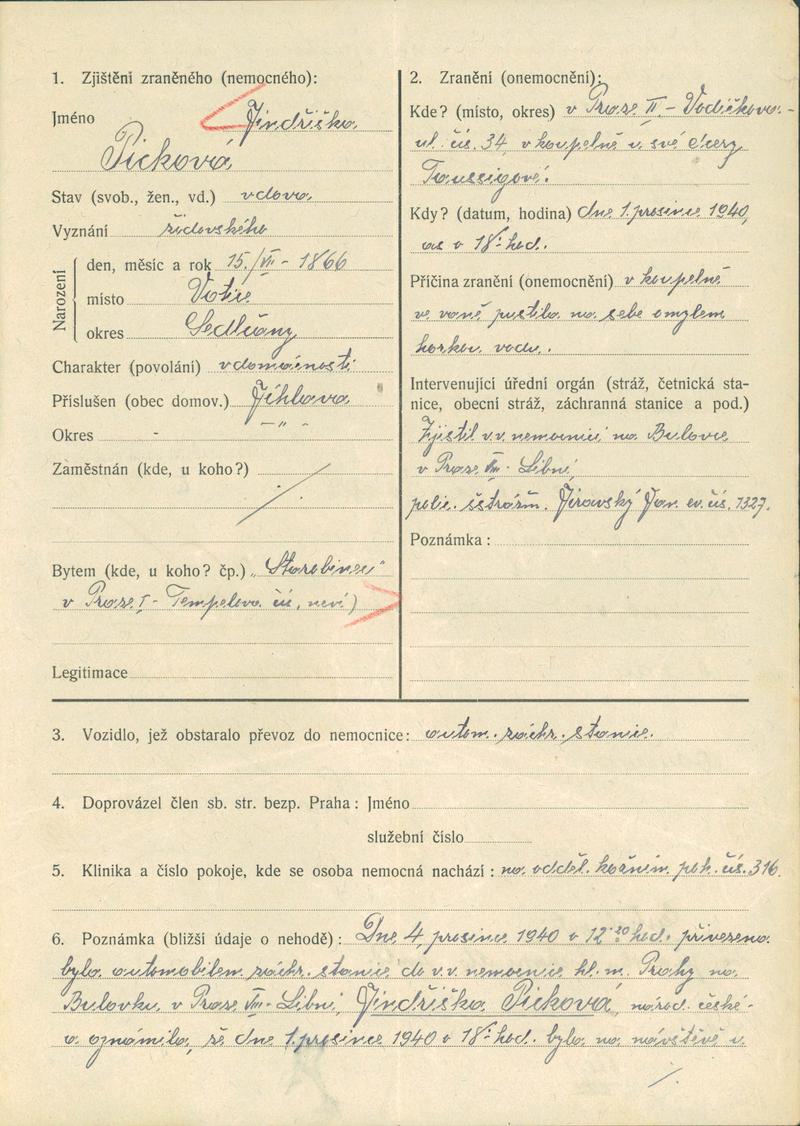 1. Zjištění zraněného (nemocného):
Jméno Jindřiška
Picková
Stav (svob., žen., vd.) vdova
Vyznání židovského
Narození
den, měsíc a rok 15./VII - 1866
místo Votice
okres Sedlčany
Charakter (povolání) v domácnosti
Příslušen (obec domov.) Jihlava
Okres - -"-
Zaměstnán (kde, u koho?)
Bytem (kde, u koho? čp.) „Starobinec"
v Praze I - Templova čís. neví)
Legitimace
2. Zranění (onemocnění):
Kde? (místo, okres) v Praze II - Vodičkova-
ul. čís. 34 v koupelně u své dcery
Taussigové.
Kdy? (datum, hodina) dne 1. prosince 1940,
as v 18 hod.
Příčina zranění (onemocnění) v koupelně
ve vaně pustila na sebe omylem
horkou vodu.
Intervenující úřední orgán (stráž, četnická sta-
nice, obecní stráž, záchranná stanice a pod.)
Zjistil v v. nemocnici na Bulovce
v Praze VIII - Libni,
polic. Jirovský Jan ev. čís. 1327.
Poznámka :
3. Vozidlo, jež obstaralo převoz do nemocnice: autom. záchr. stanice.
4. Doprovázel člen sb. str. bezp. Praha : Jméno
služební číslo
5. Klinika a číslo pokoje, kde se osoba nemocná nachází : na odděl. kožním pok. čís. 316.
6. Poznámka (bližší údaje o nehodě) : Dne 4. prosince 1940 o 12 20 hod. přivezena
byla automobilem záchr. stanice do v. v. nemocnice hl. m. Prahy na
Bulovku v Praze VIII - Libni, Jindřiška Picková, národ. české -
a oznámila, že dne 1. prosince 1940 o 18 hod. byla na návštěvě u